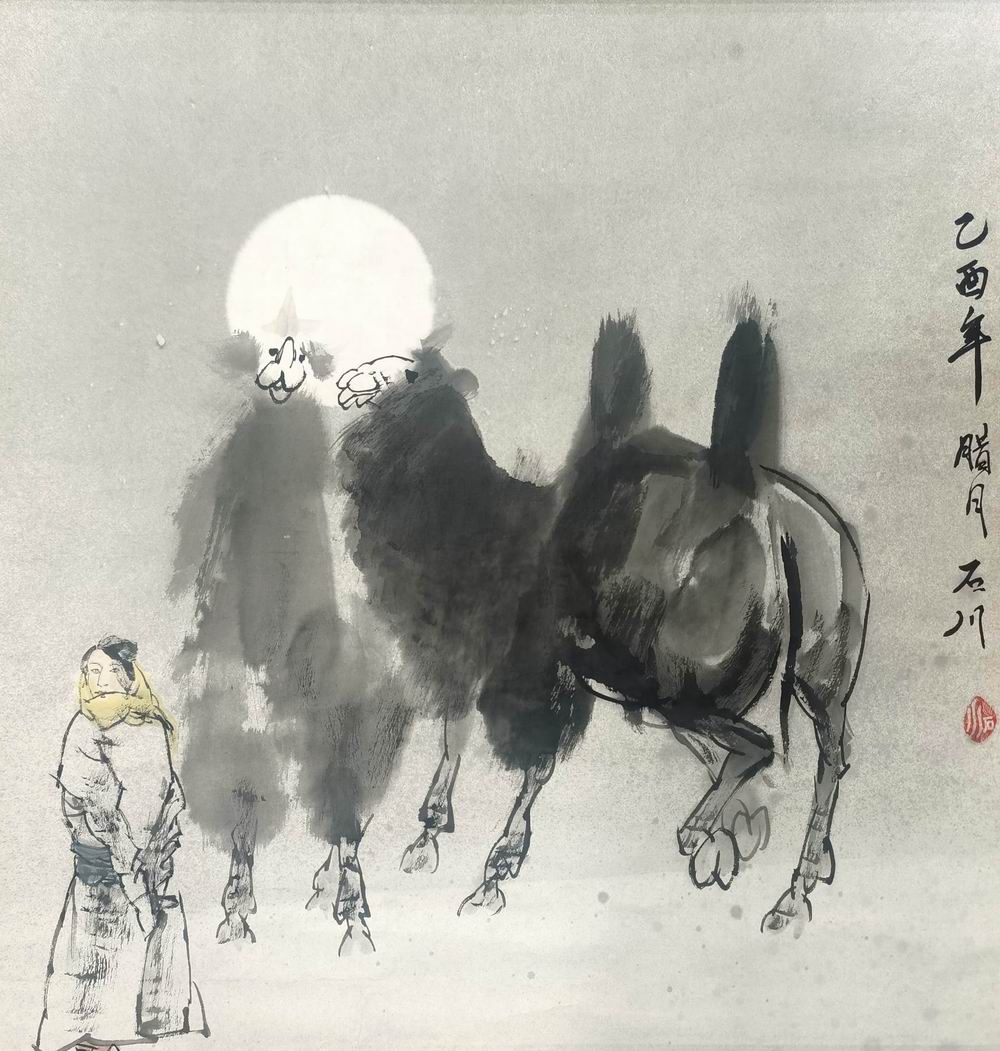 乙酉年 腊月 石川
石川